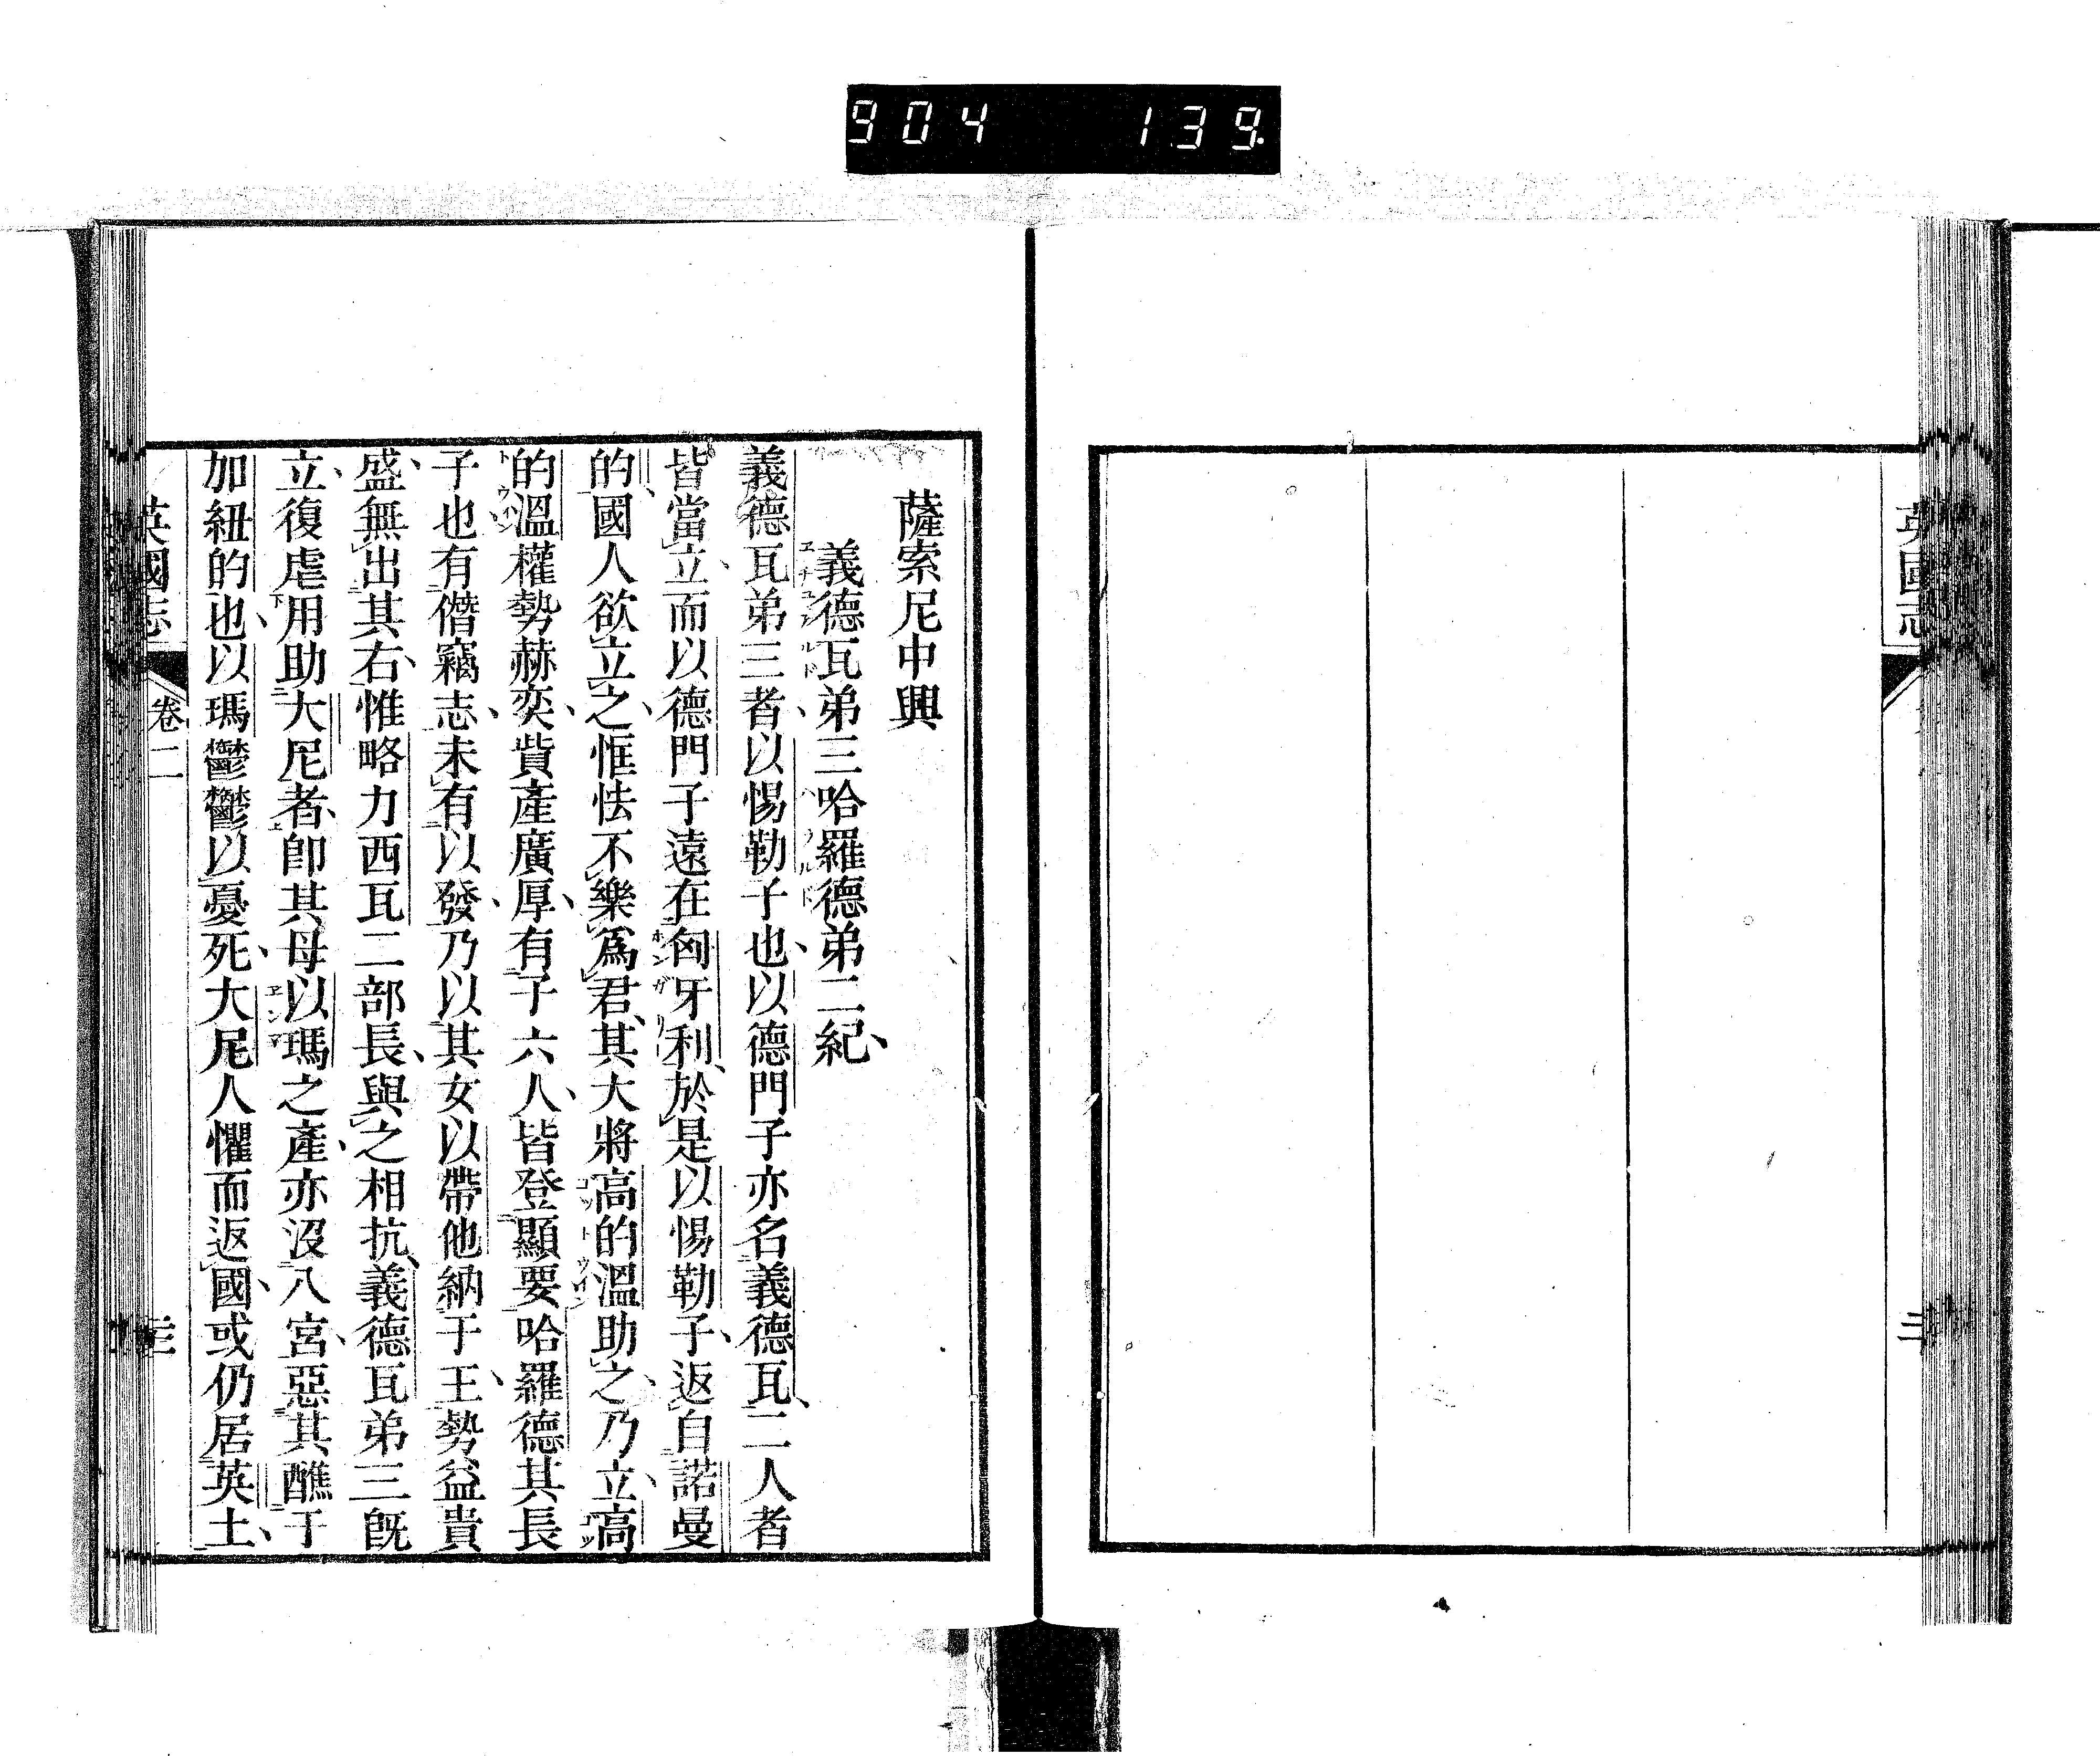 904 139
英國志
薩索尼中興
義德瓦弟三哈羅德弟二紀、
義德瓦弟三者、以惕勒子也、以德門子亦名義德瓦、二人者
皆當立、而以德門子遠在匈牙利、於是以惕勒子、返自諾曼
的、國人欲立之、恇怯不樂爲君、其大將高的溫助之、乃立、高
的溫權勢赫奕、貲產廣厚、有子六人、皆登顯要、哈羅德其長
子也、有僭竊志、未有以發、乃以其女以帶他納于王、勢益貴
盛、無出其右、惟略力西瓦二部長、與之相抗、義德瓦弟三既
立、復虐用助大尼者、卽其母以瑪之產、亦沒入宮、惡其醮于
加紐的也、以瑪鬱鬱以憂死、大尼人懼而返國、或仍居英土、
英國志
卷二